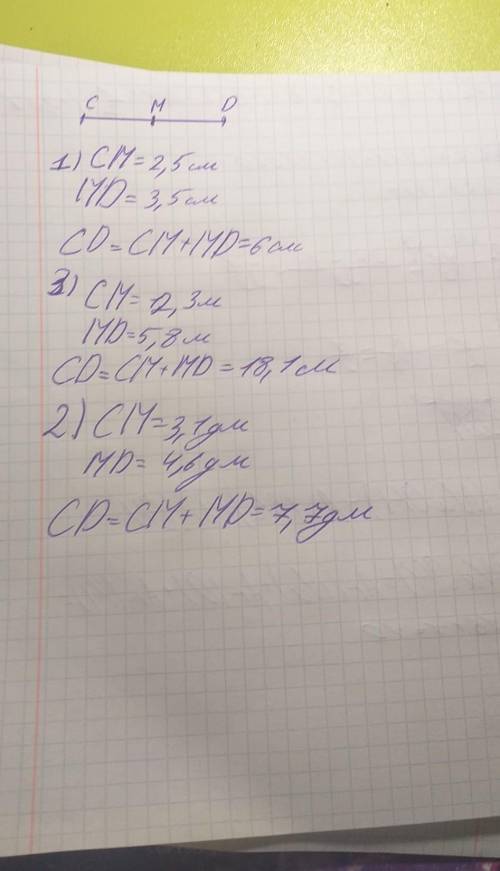 C M D
1) CM = 2,5 см
MD = 3,5 см
CD = CM + MD = 6 см
3) CM = 12,3 м
MD = 5,8 м
CD = CM + MD = 18,1 см
2) CM = 3,1 дм
MD = 4,6 дм
CD = CM + MD = 7,7 дм